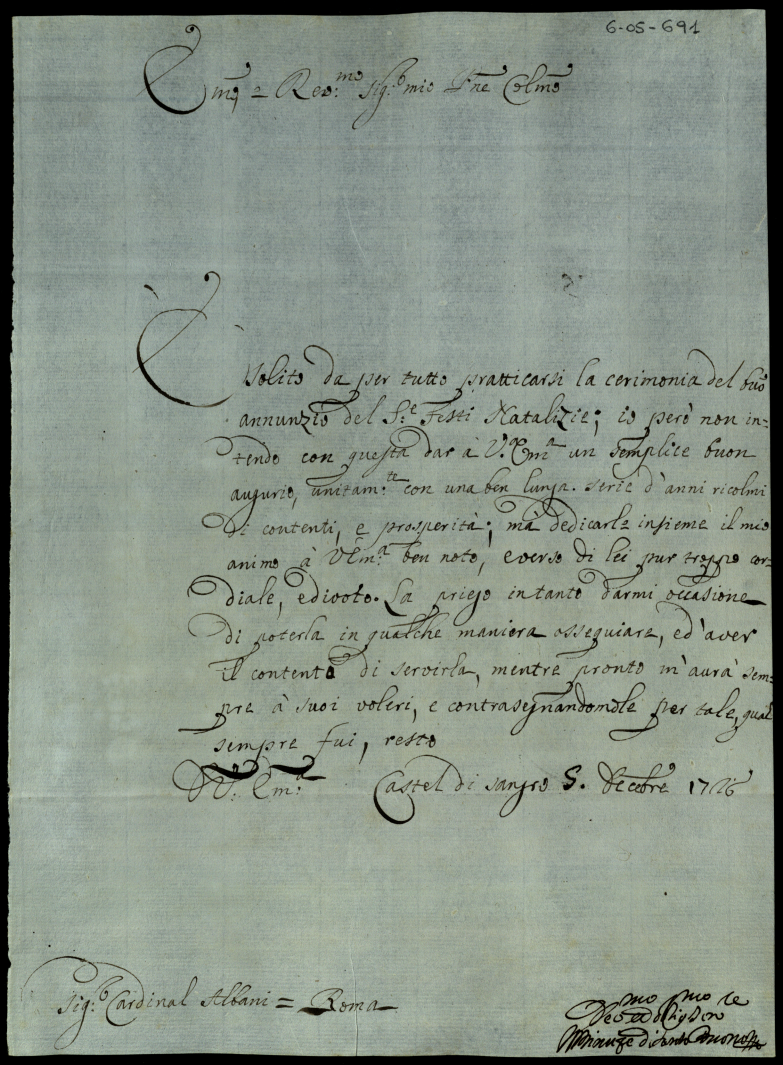 6-05-691
Em̃o = Reu.mo Sig.r mio P͠ne Colm̃o
È solito da per tutto pratticarsi la cerimonia del buõ
annunzio del S.te Festi Natalizie; io però non in=
tendo con questa dar à V. Em.a un semplice buon
augurio, unitam.te con una ben lunga serie d'anni ricolmi
di contenti, e prosperità; mà dedicarle insieme il mio
animo à V. Em.a ben noto, e verso di lei pur troppo cor=
diale, e divoto. La priego intanto darmi occasione
di poterla in qualche maniera ossequiare, ed'aver
il contento di servirla, mentre pronto m'aurà sem=
pre à suoi voleri, e contrasegnandomele per tale, qual
sempre fui, resto
Di V. Em.a Castel di sangro 5. Decẽbre 1726
Sig.r Cardinal Albani = Roma
Dev.mo ed Oblig.mo Ser.re
di Santo Buono